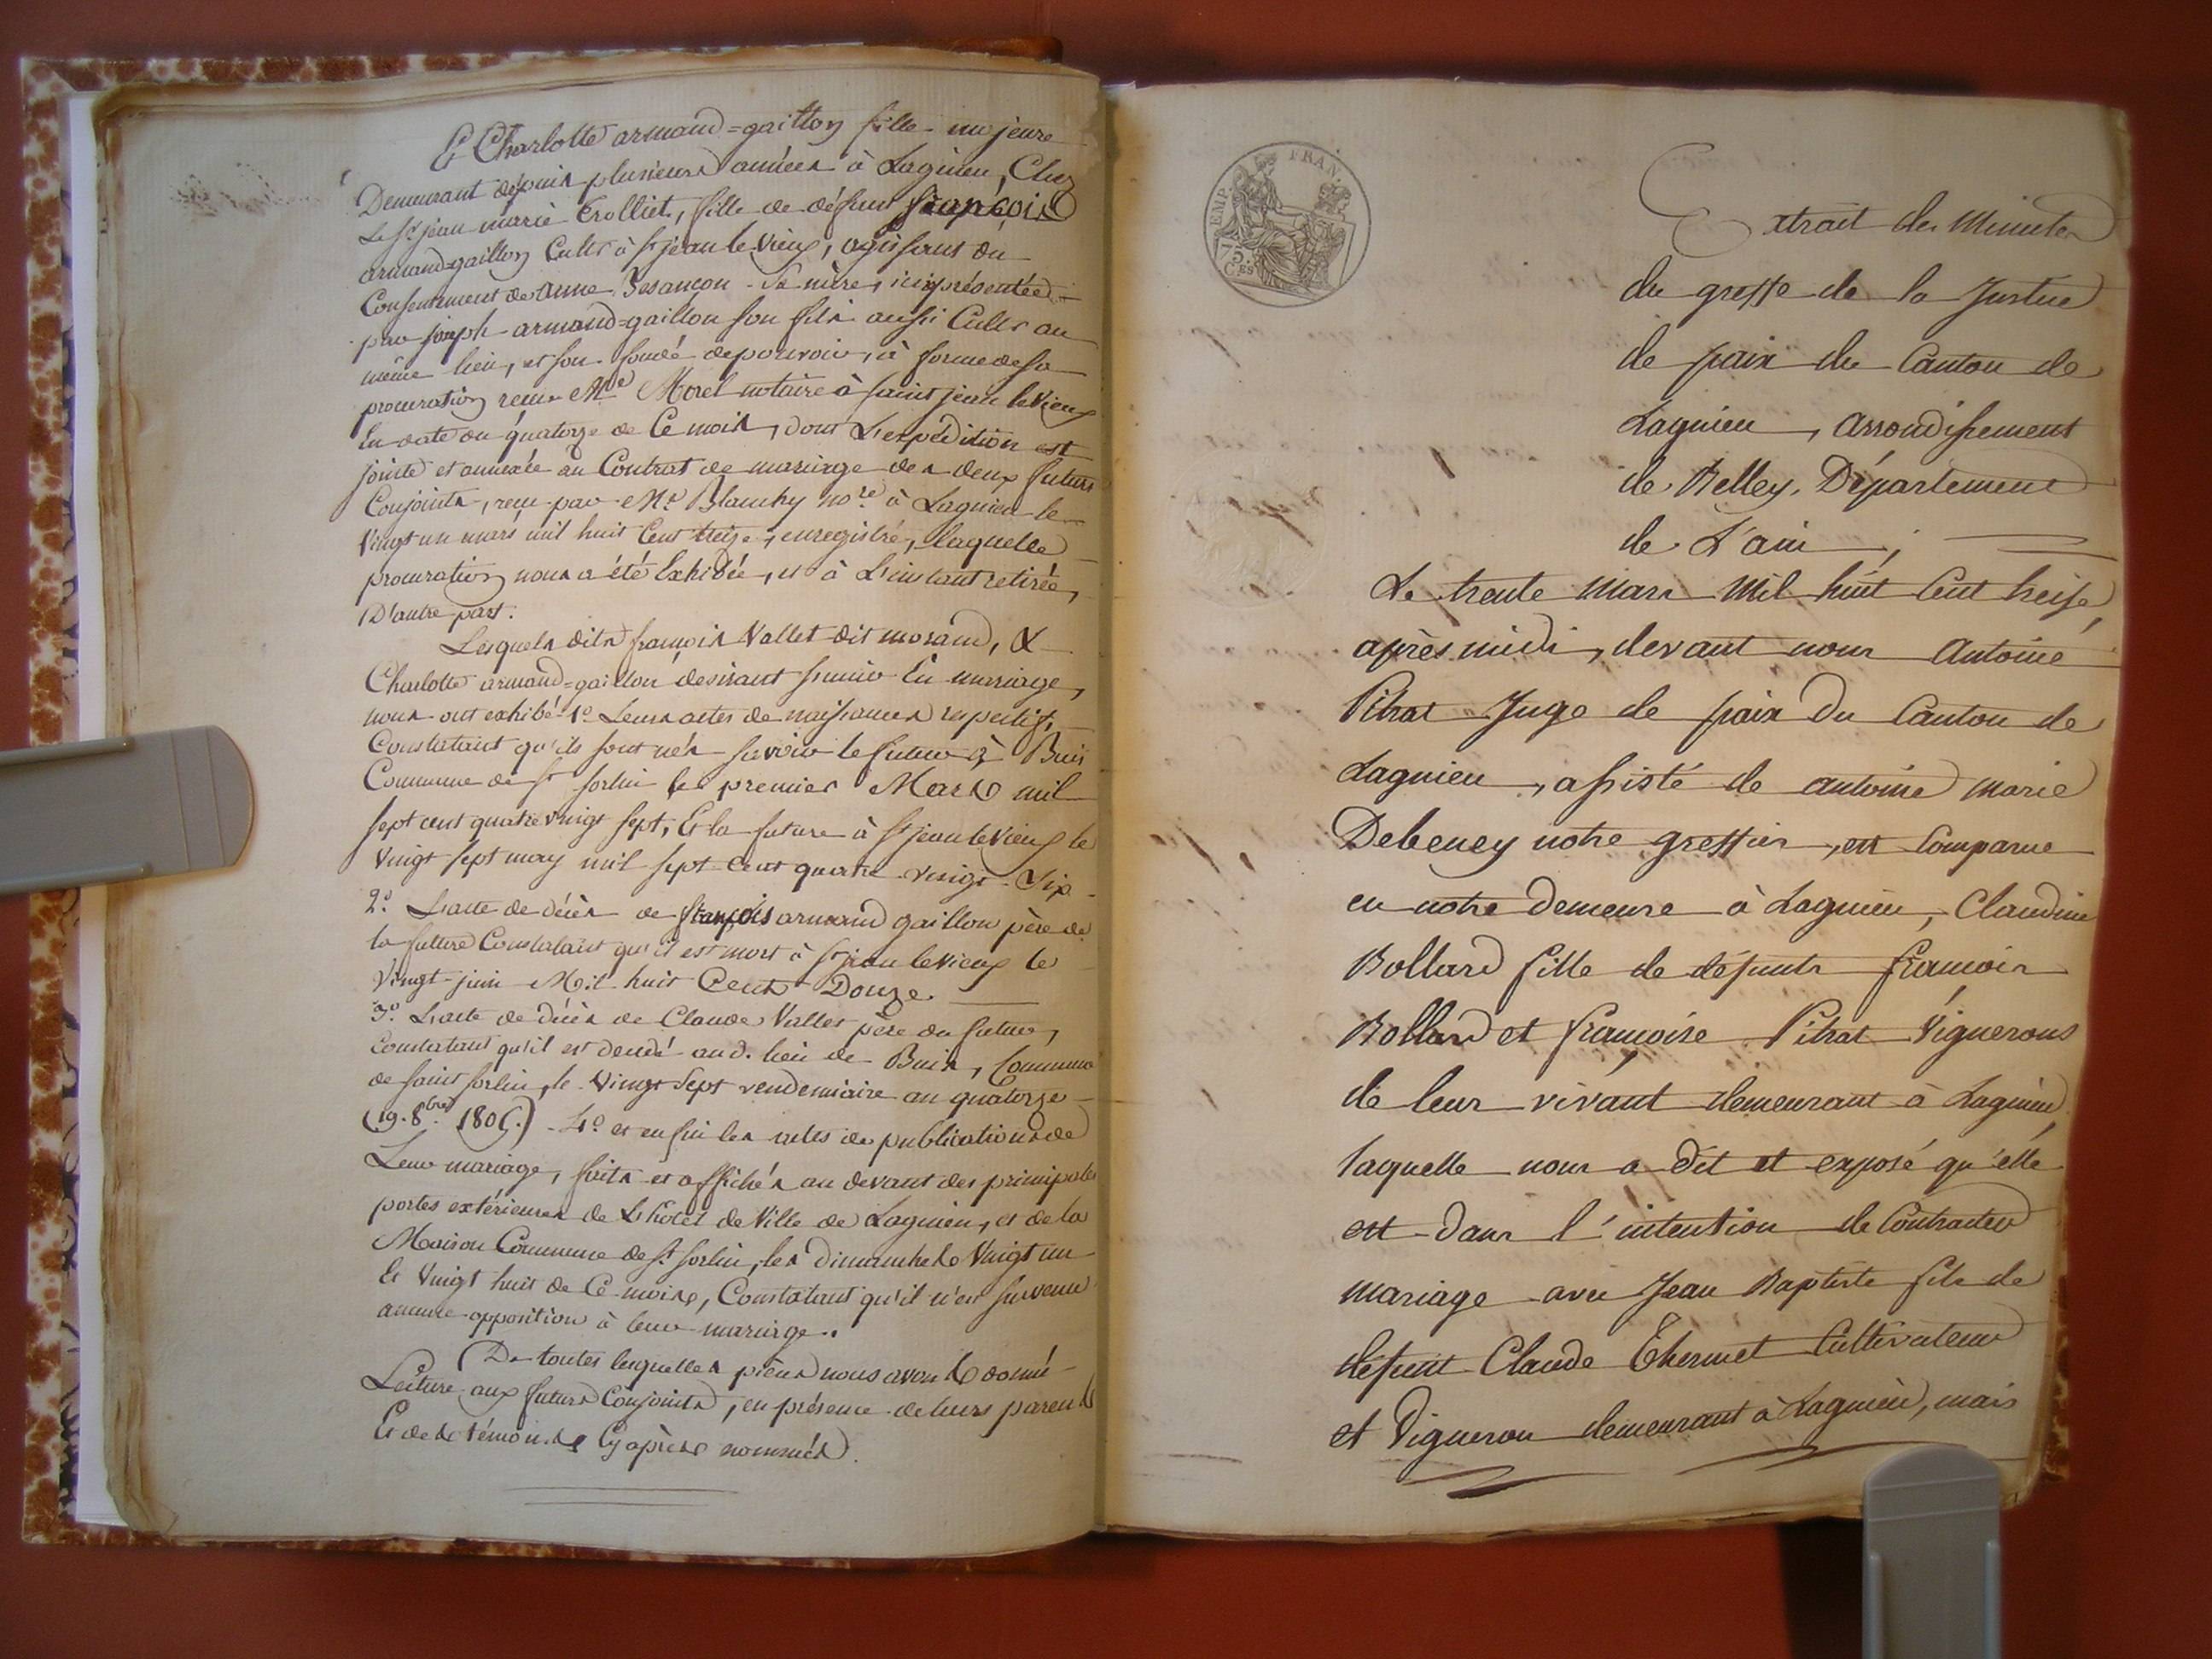 Et Charlotte armand=gaillon fille majeure
Demeurant depuis plusieurs années à Lagnieu, Chez
Le Sr. jean marie Trolliet, fille de défunt françois
armand=gaillon Cultr. à St jean le vieux, agissant du
Consentement de anne Besançon sa mère, ici représentée
par joseph armand=gaillon son fils aussi Cultr au
même lieu, et son fondé de pouvoir, à forme de sa
procuration reçue Me Morel notaire à saint jean le vieux
En date du quatorze de Ce mois, dont L'expédition est
jointe et annexée au Contrat de mariage des deux futurs
Conjoints, reçu par Me. Blanchy nore à Lagnieu le
Vingt un mars mil huit Cent treize, enregistré, laquelle
procuration nous a été Exhibée, et à L'instant retirée,
D'autre part.
Lesquels dits françois Vallet dit morand, &
Charlotte armand=gaillon desirant s'unir En mariage,
nous ont exhibé 1º Leurs actes de naissances respectifs,
Constatant qu'ils sont nés savoir le futur à Buis
Commune de St sorlin le premier Mars mil
sept cent quatre vingt sept, Et la future à St jean le Vieux le
Vingt sept may mil sept Cent quatre-vingt-Six
2º. L'acte de décès de françois armand gaillon père de
la future Constatant qu'il est mort à St jean le vieux le
Vingt juin Mil huit Cent Douze.
3º. L'acte de décès de Claude Vallet père du futur,
Constatant qu'il est décédé aud. lieu de Buis, Commune
de saint sorlin, le Vingt Sept vendemiaire an quatorze
(19. 8bre. 1805.) - 4º et enfin les actes de publications de
Leur mariage, faits et affichés au devant des principales
portes extérieures de L'hôtel de Ville de Lagnieu, et de la
Maison Commune de St. sorlin, les Dimanches Vingt un
Et Vingt huit de Ce mois, Constatant qu'il n'est survenu
aucune opposition à leur mariage.
De toutes lesquelles pièces nous avons donné
Lecture aux futurs Conjoints, en présence de leurs parents
Et des témoins Cy après nommés.
TIMP. FRAN.
75.
Ces
Extrait des Minutes
du greffe de la Justice
de paix du Canton de
Lagnieu, arrondissement
de Belley, Département
de L'ain ;
Le trente Mars Mil huit Cent treise,
après midi, devant nous Antoine
Pitrat Juge de paix du Canton de
Lagnieu, assisté de antoine marie
Debeney notre greffier, est Comparue
en notre Demeure à Lagnieu, Claudine
Bollard fille de défunts françois
Bollard et françoise Pitrat Vignerons
de leur vivant demeurant à Lagnieu,
laquelle nous a dit et exposé qu'elle
est dans l'intention de Contracter
mariage avec Jean Baptiste fils de
défunt Claude Thermet Cultivateur
et Vigneron demeurant à Lagnieu, mais